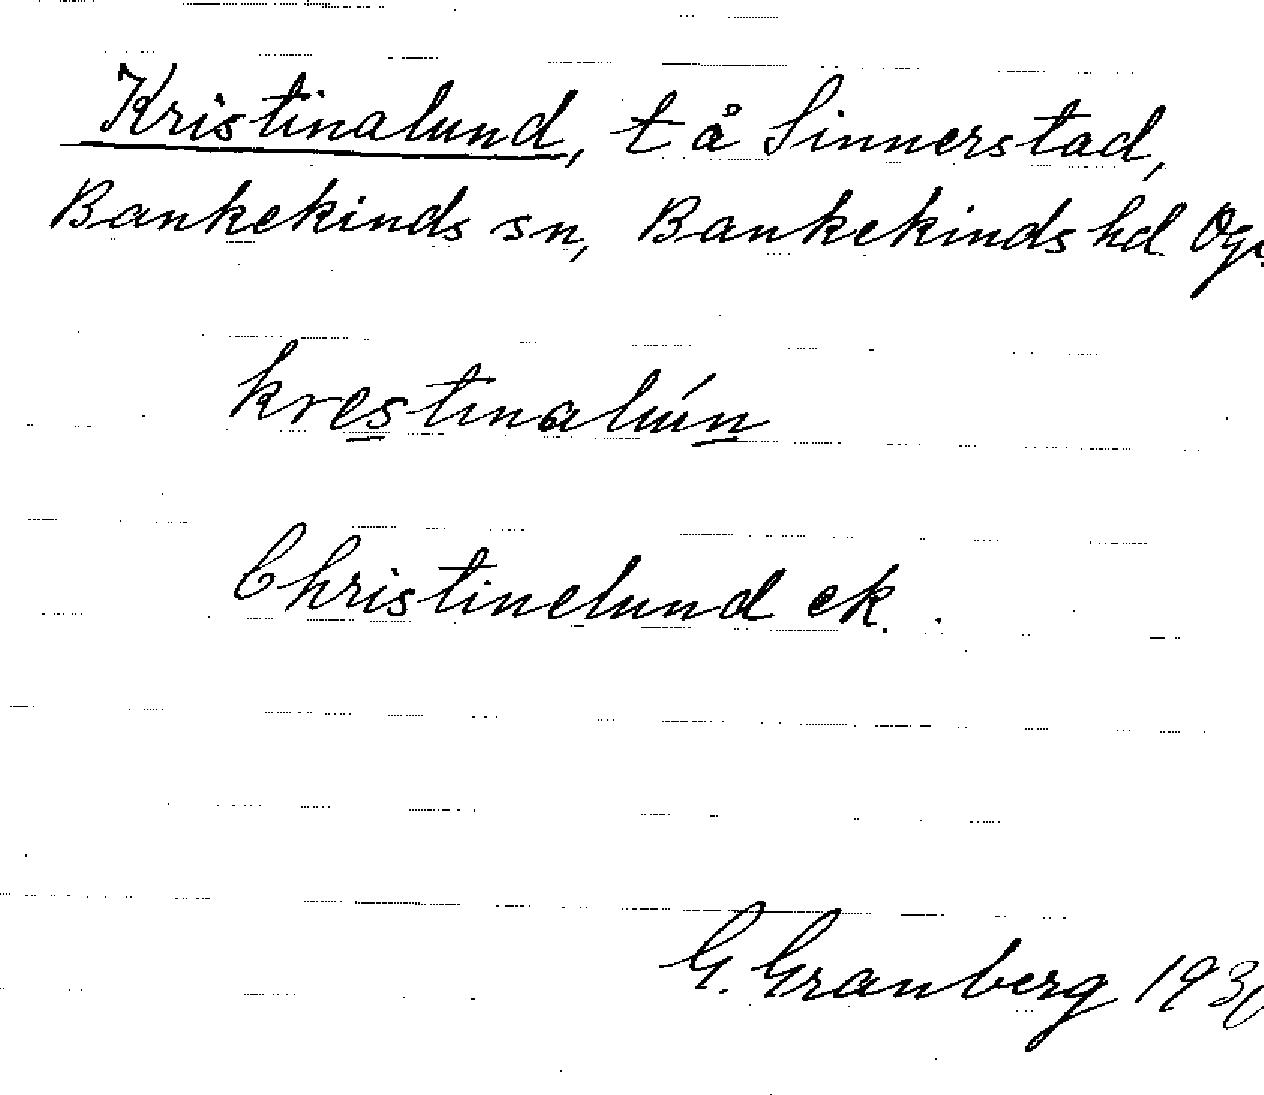 Kristinalund, t å Sinnerstad,
Bankekinds sn, Bankekinds hd Ög.
krestinalún
Christinelund ek.
G. Granberg